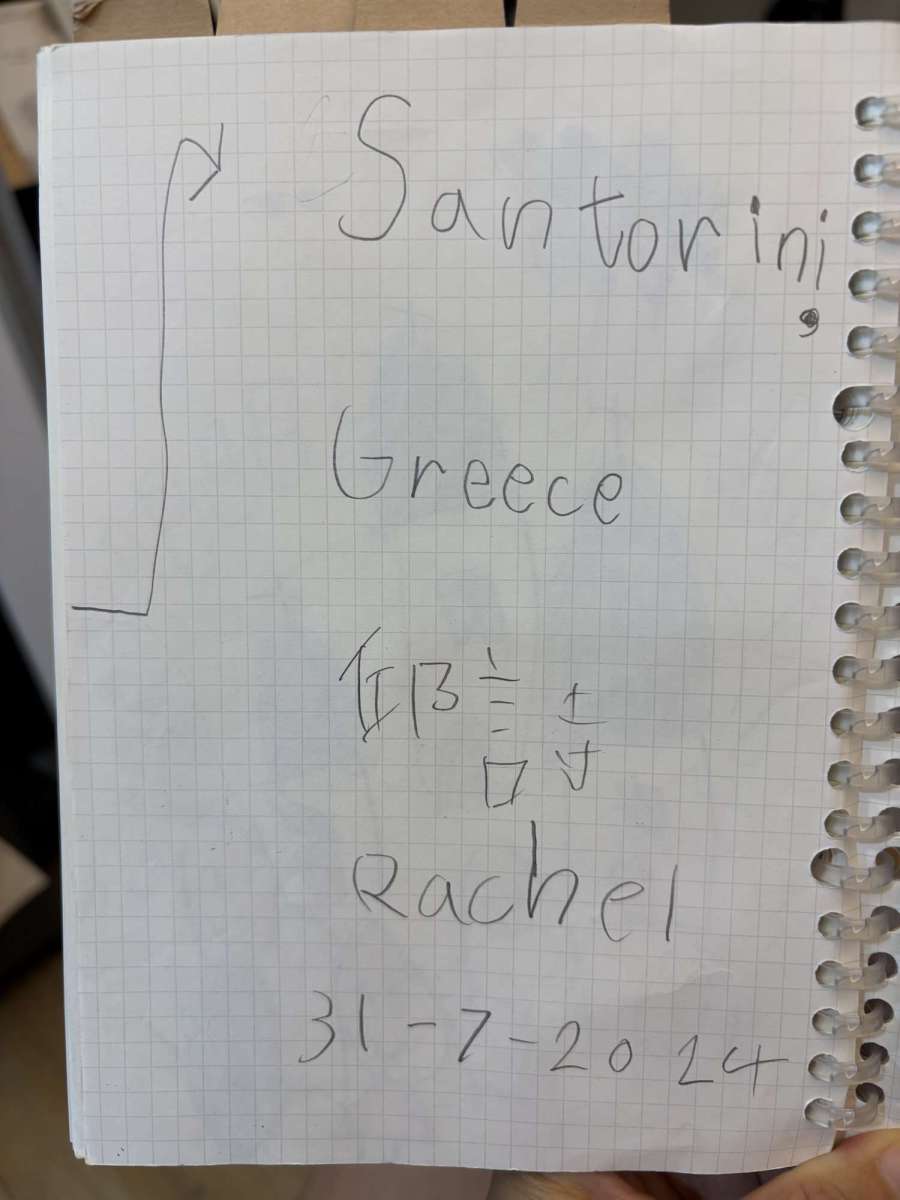 Santorini,
Greece
邱詩
Rachel
31-7-2024